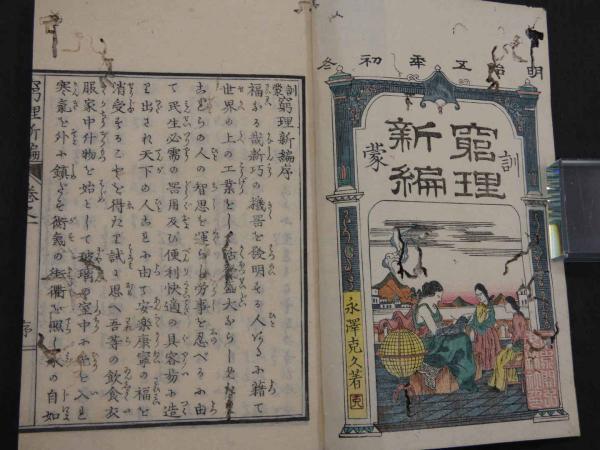 明治五年初冬
訓蒙
窮理
新編
永澤克久著
訓蒙窮理新編序
福なる哉新巧の機器を發明する人あるに藉て
世界の上の工業として盛大ならし
古への人の智思を運らし勞事を忍べるに由
て民生必需の器用及び便利快適の具容易に造
り出され天下の人古に由て安樂康寧の福を
消受することを得たり試に思へ吾等の飲食衣
服家中什物を始として玻璃の室中に光を入れ
寒氣を外に鎮ざし街を照し水の自如
窮理新編 卷之一 序 一